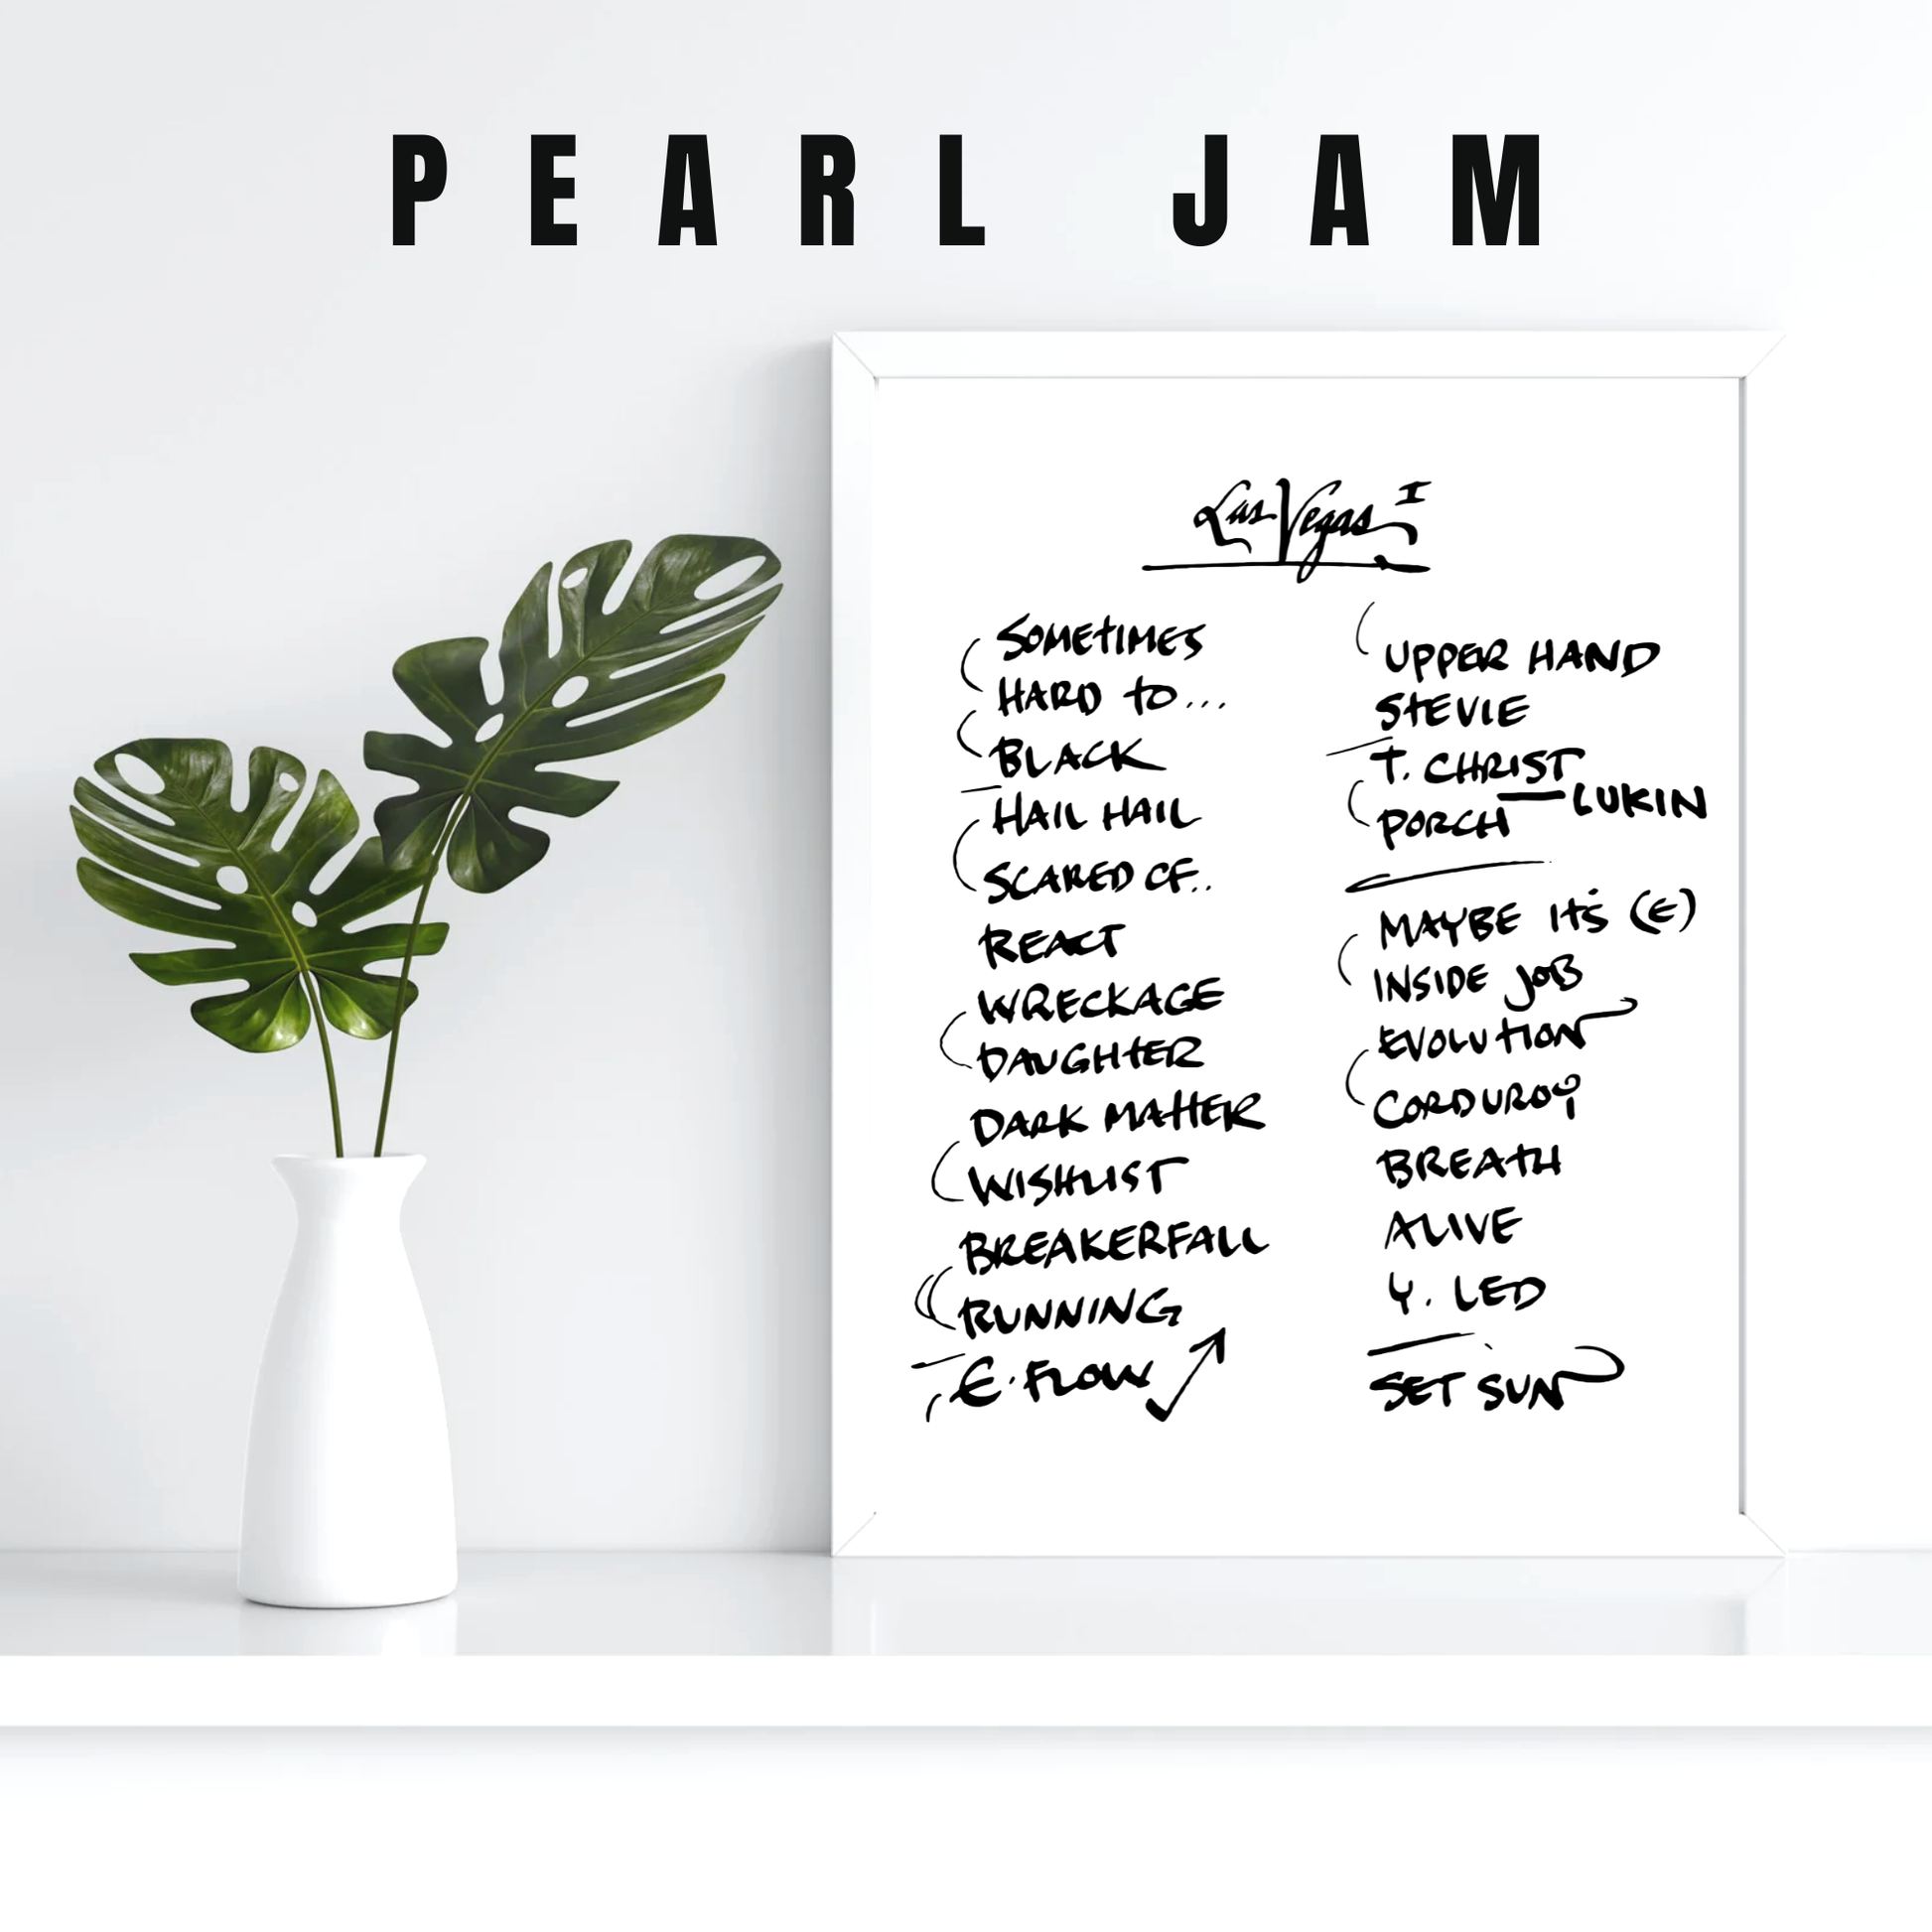 PEARL JAM
Las Vegas I
SOMETIMES
HARD TO...
BLACK
HAIL HAIL
SCARED OF..
REACT
WRECKAGE
DAUGHTER
DARK MATTER
WISHLIST
BREAKERFALL
RUNNING
E. FLOW
UPPER HAND
STEVIE
T. CHRIST
LUKIN
PORCH
MAYBE IT'S (E)
INSIDE JOB
EVOLUTION
CORDUROY
BREATH
ALIVE
Y. LED
SET SUN